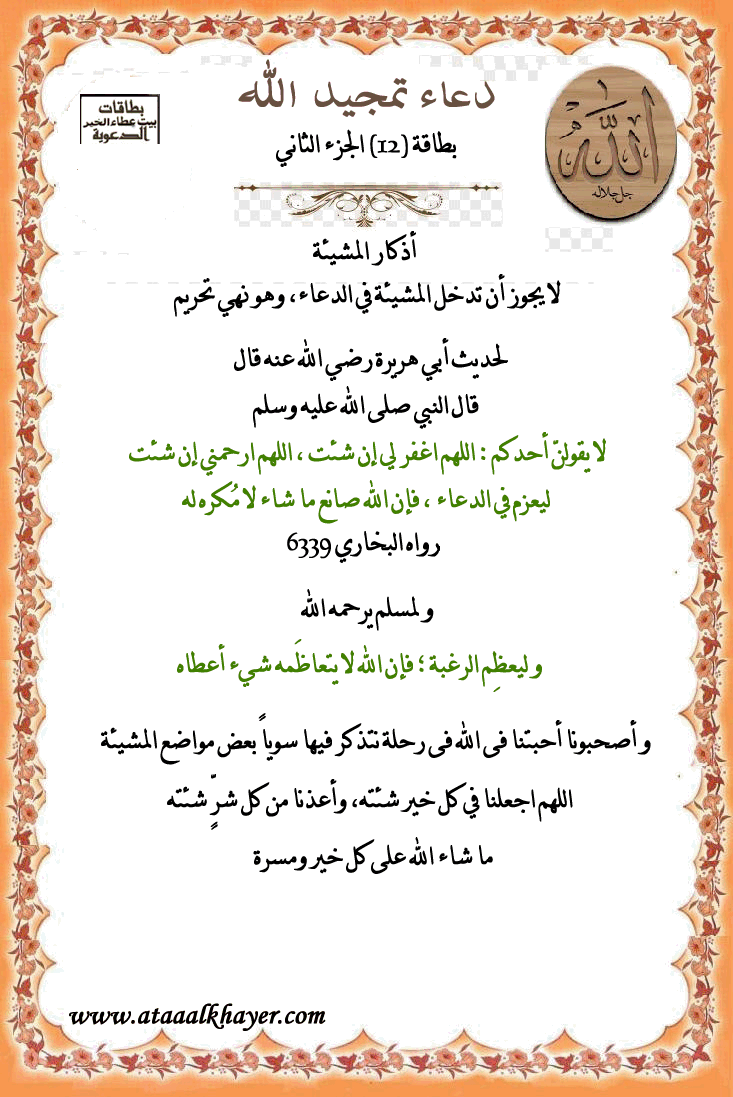 دعاء تمجيد الله
بطاقة (12) الجزء الثاني
بطاقات
بيت عطاء الخير
الدعوية
الله
جل جلاله
أذكار المشيئة
لا يجوز أن تدخل المشيئة في الدعاء، وهو نهي تحريم
لحديث أبي هريرة رضي الله عنه قال
قال النبي صلى الله عليه وسلم
لا يقولنّ أحدكم : اللهم اغفر لي إن شئت ، اللهم ارحمني إن شئت
ليعزم في الدعاء ، فإن الله صانع ما شاء لا مُكره له
رواه البخاري 6339
ولمسلم يرحمه الله
وليعظِم الرغبة ؛ فإن الله لا يتعاظَمه شيء أعطاه
وأصحبونا أحبتنا فى الله فى رحلة نتذكر فيها سوياً بعض مواضع المشيئة
اللهم اجعلنا في كل خير شئته، وأعذنا من كل شرٍّ شئته
ما شاء الله على كل خير ومسرة
www.ataaalkhayer.com